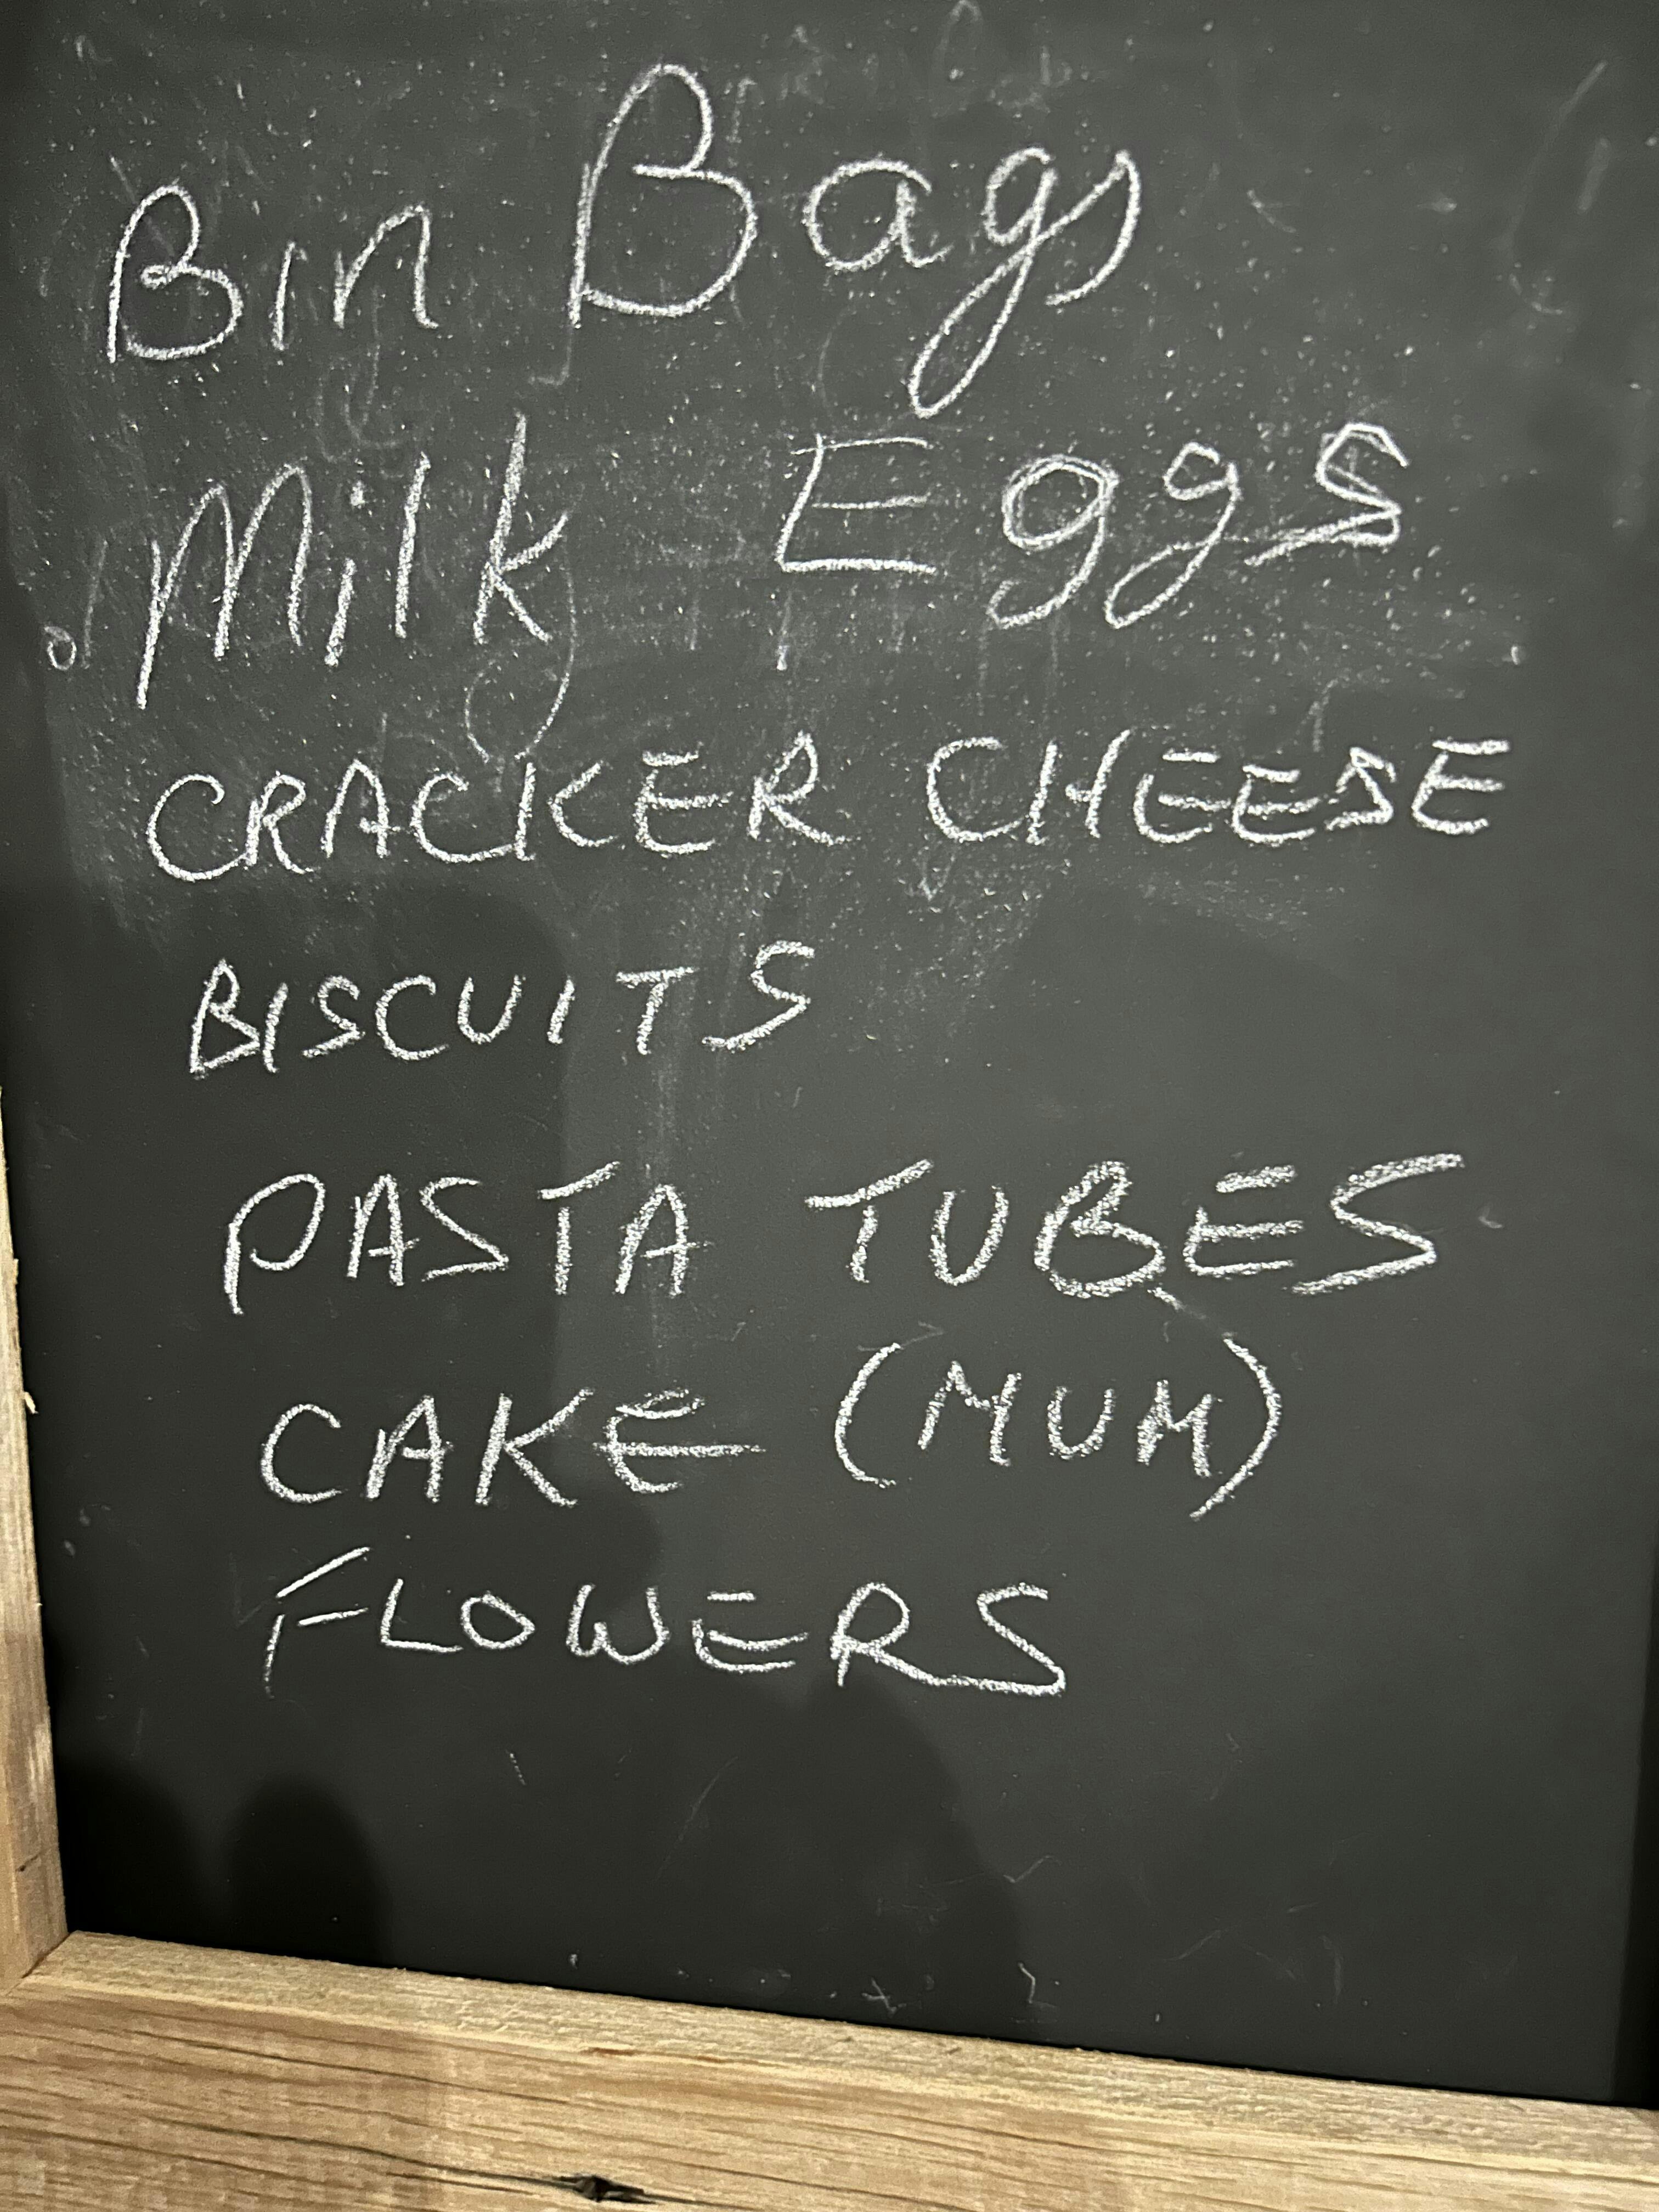 Bin Bags
Milk Eggs
CRACKER CHEESE
BISCUITS
PASTA TUBES
CAKE (MUM)
FLOWERS